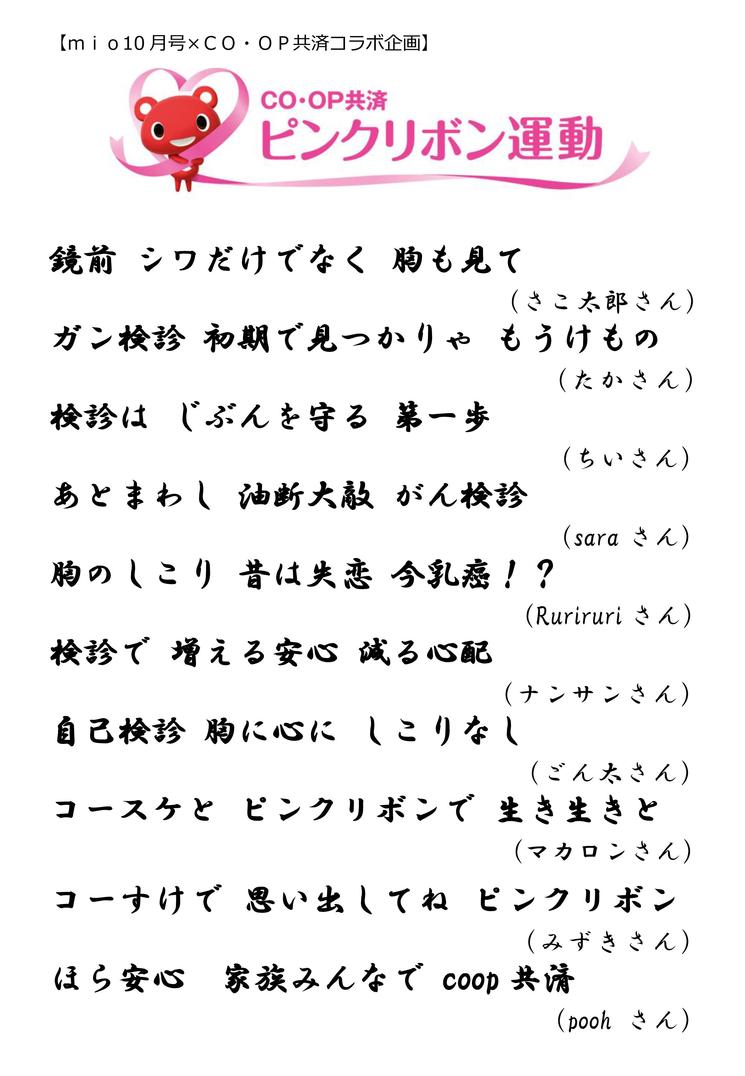 【ｍｉｏ10月号×ＣＯ・ＯＰ共済コラボ企画】
CO・OP共済
ピンクリボン運動
鏡前 シワだけでなく 胸も見て
（さこ太郎さん）
ガン検診 初期で見つかりゃ もうけもの
（たかさん）
検診は じぶんを守る 第一歩
（ちいさん）
あとまわし 油断大敵 がん検診
（sara さん）
胸のしこり 昔は失恋 今乳癌！？
（Ruriruri さん）
検診で 増える安心 減る心配
（ナンサンさん）
自己検診 胸に心に しこりなし
（ごん太さん）
コースケと ピンクリボンで 生き生きと
（マカロンさん）
コーすけで 思い出してね ピンクリボン
（みずきさん）
ほら安心　家族みんなで coop 共済
（pooh さん）